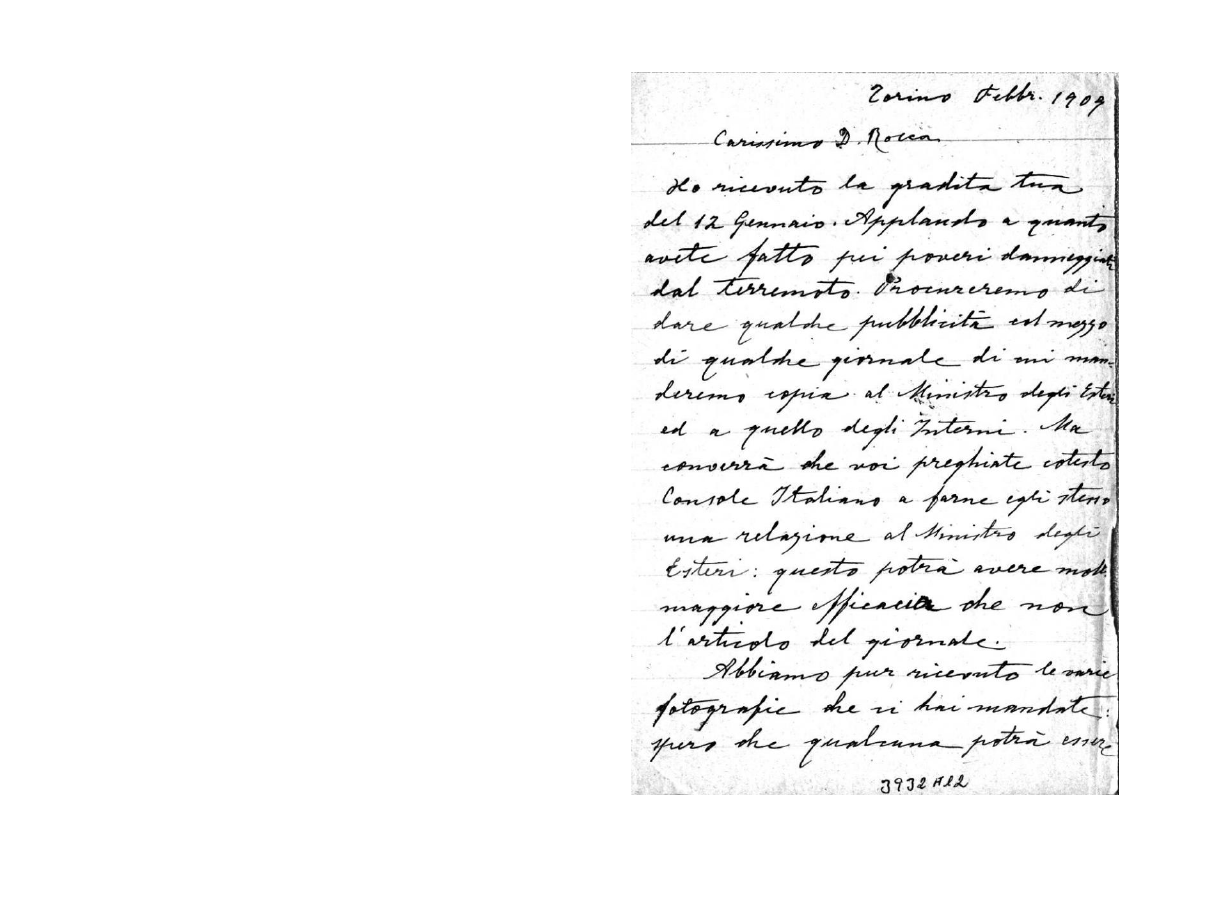 Torino Febbr. 1909
Carissimo D. Rocca
Ho ricevuto la gradita tua
del 12 Gennaio. Applaudo a quanto
avete fatto pei poveri danneggiati
dal terremoto. Procureremo di
dare qualche pubblicità col mezzo
di qualche giornale di cui man-
deremo copia al Ministro degli Esteri
ed a quello degli Interni. Ma
converrà che voi preghiate cotesto
Console Italiano a farne egli stesso
una relazione al Ministro degli
Esteri: questo potrà avere molto
maggiore efficacia che non
l'articolo del giornale.
Abbiamo pur ricevuto le varie
fotografie che ci hai mandate:
spero che qualcuna potrà essere
3932 A12